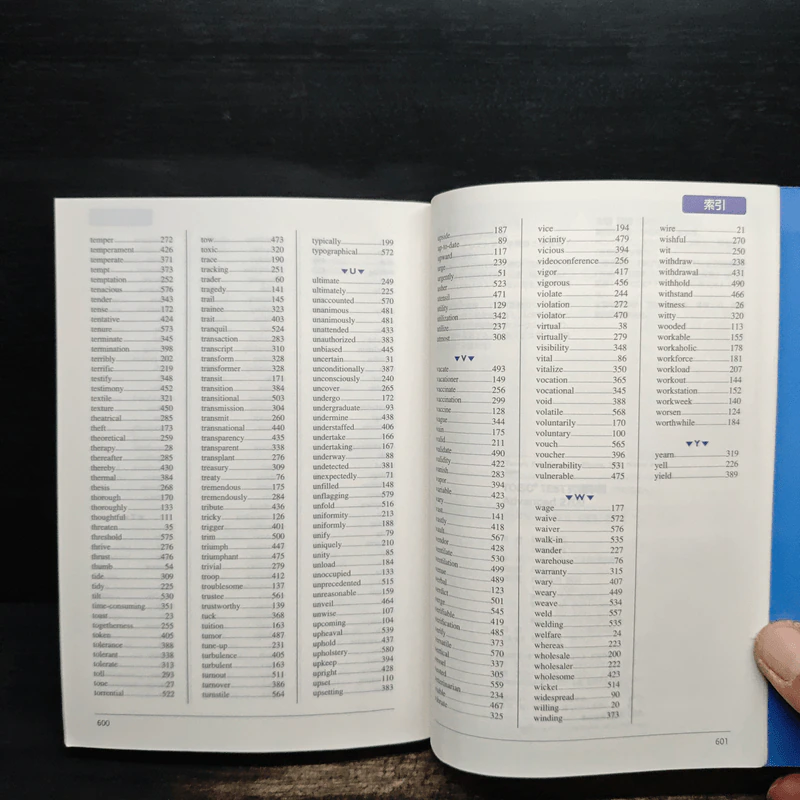 temper 272
temperament 426
temperate 371
tempt 373
temptation 252
tenacious 576
tender 343
tense 172
tentative 424
tenure 573
terminate 345
termination 398
terribly 202
terrific 219
testify 348
testimony 452
textile 321
texture 450
theatrical 285
theft 173
theoretical 259
therapy 28
thereafter 285
thereby 430
thermal 384
thesis 268
thorough 170
thoroughly 133
thoughtful 111
threaten 35
threshold 575
thrive 276
thrust 476
thumb 54
tide 309
tidy 225
tilt 530
time-consuming 351
toast 23
togetherness 255
token 405
tolerance 388
tolerant 338
tolerate 313
toll 293
tone 27
torrential 522
tow 473
toxic 320
trace 190
tracking 251
trader 60
tragedy 141
trail 145
trainee 323
trait 403
tranquil 524
transaction 283
transcript 310
transform 328
transformer 328
transit 171
transition 384
transitional 503
transmission 304
transmit 260
transnational 440
transparency 435
transparent 338
transplant 276
treasury 309
treaty 76
tremendous 175
tremendously 284
tribute 436
tricky 126
trigger 401
trim 500
triumph 447
triumphant 475
trivial 279
troop 412
troublesome 137
trustee 561
trustworthy 139
tuck 368
tuition 163
tumor 487
tune-up 231
turbulence 405
turbulent 163
turnout 511
turnover 386
turnstile 564
typically 199
typographical 572
▼U▼
ultimate 249
ultimately 225
unaccounted 570
unanimous 481
unanimously 481
unattended 433
unauthorized 383
unbiased 445
uncertain 31
unconditionally 387
unconsciously 240
uncover 265
undergo 172
undergraduate 93
undermine 438
understaffed 406
undertake 166
undertaking 167
underway 88
undetected 381
unexpectedly 71
unfilled 148
unflagging 579
unfold 516
uniformity 213
uniformly 188
unify 79
uniquely 210
unity 85
unload 184
unoccupied 133
unprecedented 515
unreasonable 159
unveil 464
unwise 107
upcoming 104
upheaval 539
uphold 437
upholstery 580
upkeep 394
upright 428
upset 110
upsetting 383
600
索引
upside 187
up-to-date 89
upward 117
urge 239
urgently 51
usher 523
utensil 471
utility 129
utilization 342
utilize 237
utmost 308
▼V▼
vacate 493
vacationer 149
vaccinate 256
vaccination 299
vaccine 128
344
vain 175
valid 211
validate 490
validity 422
vanish 283
vapor 394
variable 423
vary 39
vast 141
418
vendor 567
ventilate 428
ventilation 530
venue 499
verbal 489
verdict 123
verge 501
verifiable 545
verification 419
verify 485
versatile 373
vertical 570
vessel 337
305
veterinarian 559
viable 234
vibrate 467
325
vice 194
vicinity 479
vicious 394
videoconference 256
vigor 417
vigorous 456
violate 244
violation 272
violator 470
virtual 38
virtually 279
visibility 348
vital 86
vitalize 350
vocation 365
vocational 345
void 388
volatile 568
voluntarily 170
voluntary 100
vouch 565
voucher 396
vulnerability 531
vulnerable 475
▼W▼
wage 177
waive 572
waiver 576
walk-in 535
wander 227
warehouse 76
warranty 315
wary 407
weary 449
weave 534
weld 557
welding 535
welfare 24
whereas 223
wholesale 200
wholesaler 222
wholesome 423
wicket 514
widespread 90
willing 20
winding 373
wire 21
wishful 270
wit 250
withdraw 238
withdrawal 431
withhold 490
withstand 466
witness 26
witty 320
wooded 113
workable 155
workaholic 178
workforce 181
workload 207
workout 144
workstation 152
workweek 140
worsen 124
worthwhile 184
▼Y▼
yearn 319
yell 226
yield 389
601